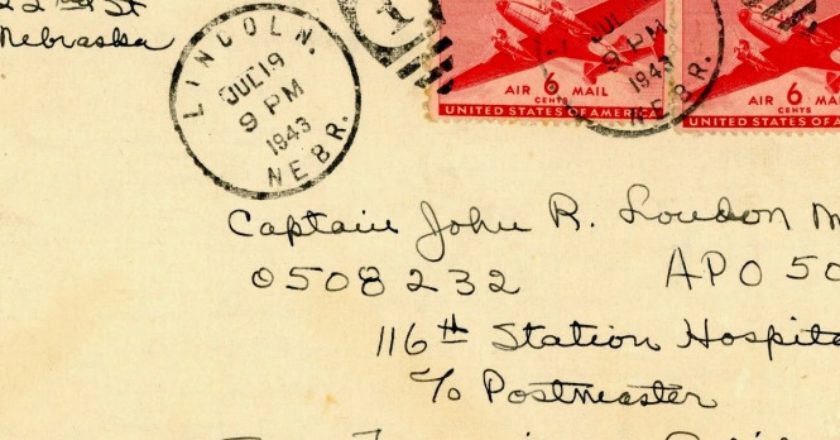 22nd St
Nebraska
LINCOLN.
JUL 19
9 PM
1943
NEBR.
1
AIR 6 MAIL
CENTS
UNITED STATES OF AMERICA
JUL
9 PM
1943
NEBR.
AIR 6 MA
CENTS
UNITED STATES OF A
Captain John R. Loudon M
0508232 APO 50
116th Station Hospita
c/o Postmaster